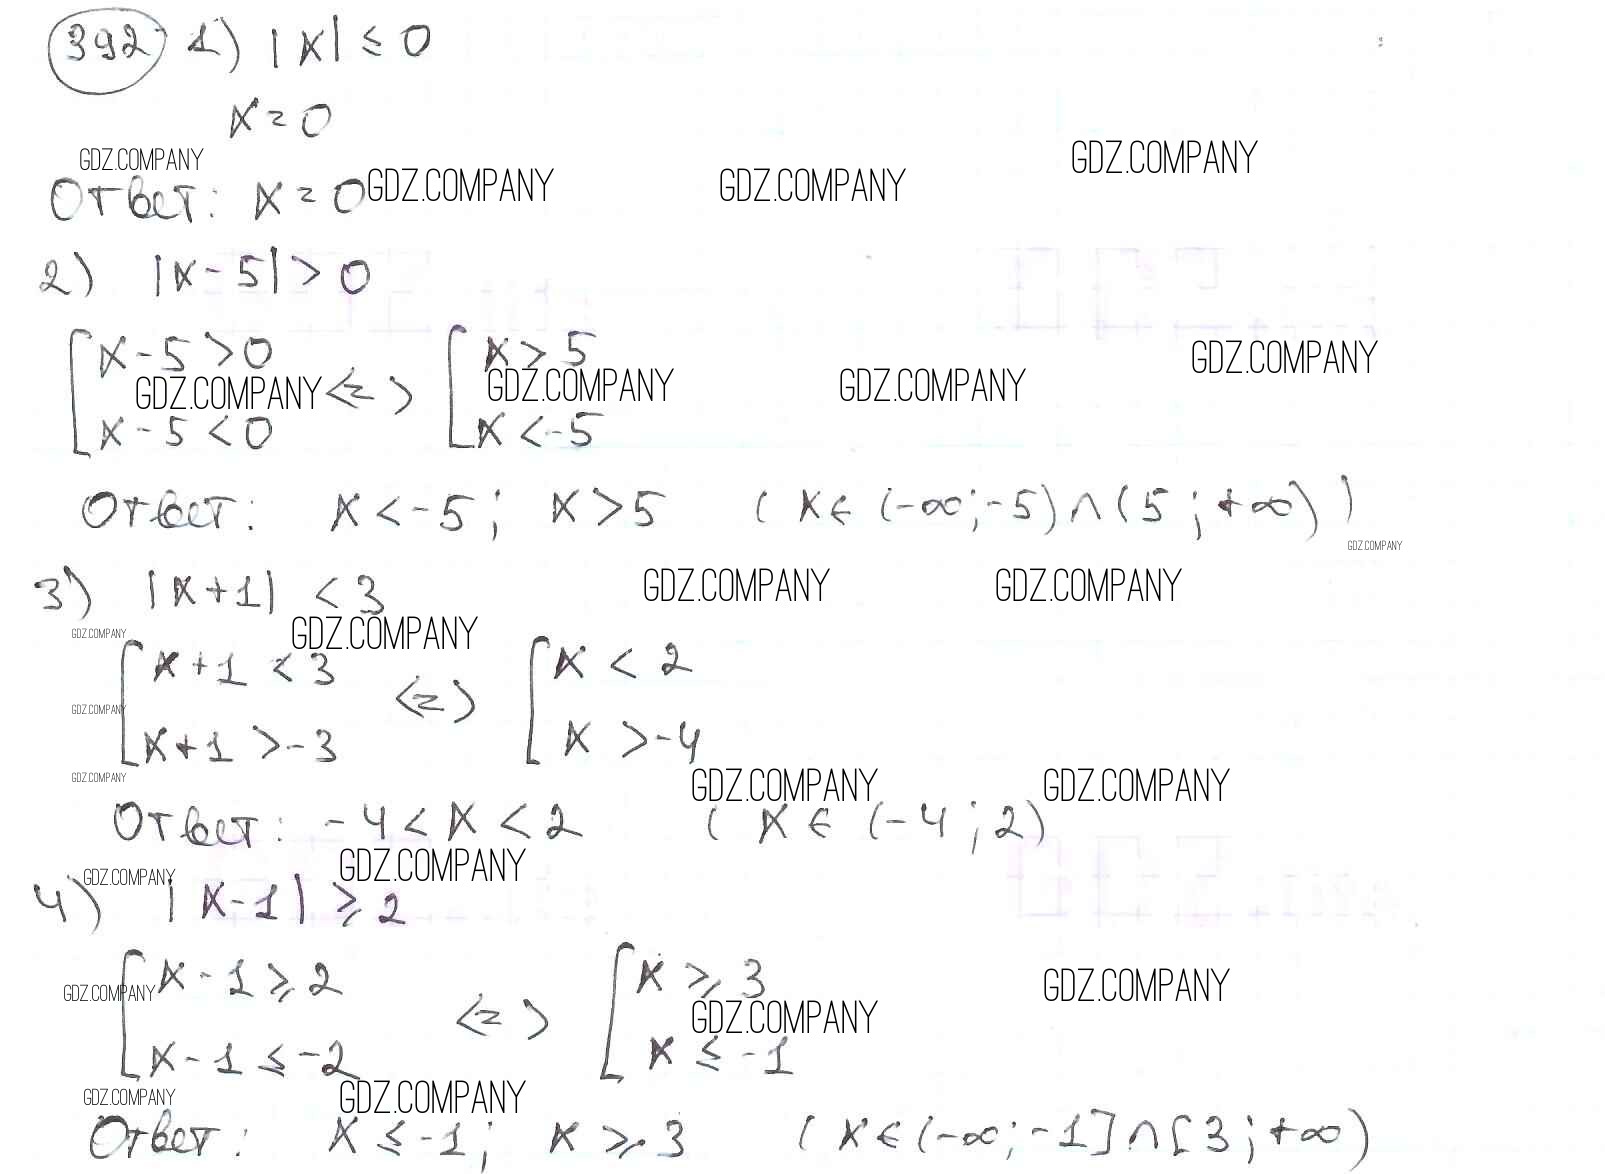 392 1) |x| ≤ 0
x = 0
GDZ.COMPANY
GDZ.COMPANY
Ответ: x = 0 GDZ.COMPANY GDZ.COMPANY
2) |x - 5| > 0
x - 5 > 0 x > 5
GDZ.COMPANY
GDZ.COMPANY <=> GDZ.COMPANY GDZ.COMPANY
x - 5 < 0 x < -5
Ответ: x < -5; x > 5 (x ∈ (-∞; -5) ∩ (5; +∞))
GDZ.COMPANY
3) |x + 1| < 3 GDZ.COMPANY GDZ.COMPANY
GDZ.COMPANY GDZ.COMPANY
x + 1 < 3 <=> x < 2
GDZ.COMPANY
x + 1 > -3 x > -4
GDZ.COMPANY GDZ.COMPANY GDZ.COMPANY
Ответ: -4 < x < 2 (x ∈ (-4; 2)
GDZ.COMPANY GDZ.COMPANY
4) |x - 1| ≥ 2
x - 1 ≥ 2 x ≥ 3
GDZ.COMPANY <=> GDZ.COMPANY GDZ.COMPANY
x - 1 ≤ -2 x ≤ -1
GDZ.COMPANY GDZ.COMPANY
Ответ: x ≤ -1; x ≥ 3 (x ∈ (-∞; -1] ∩ [3; +∞)